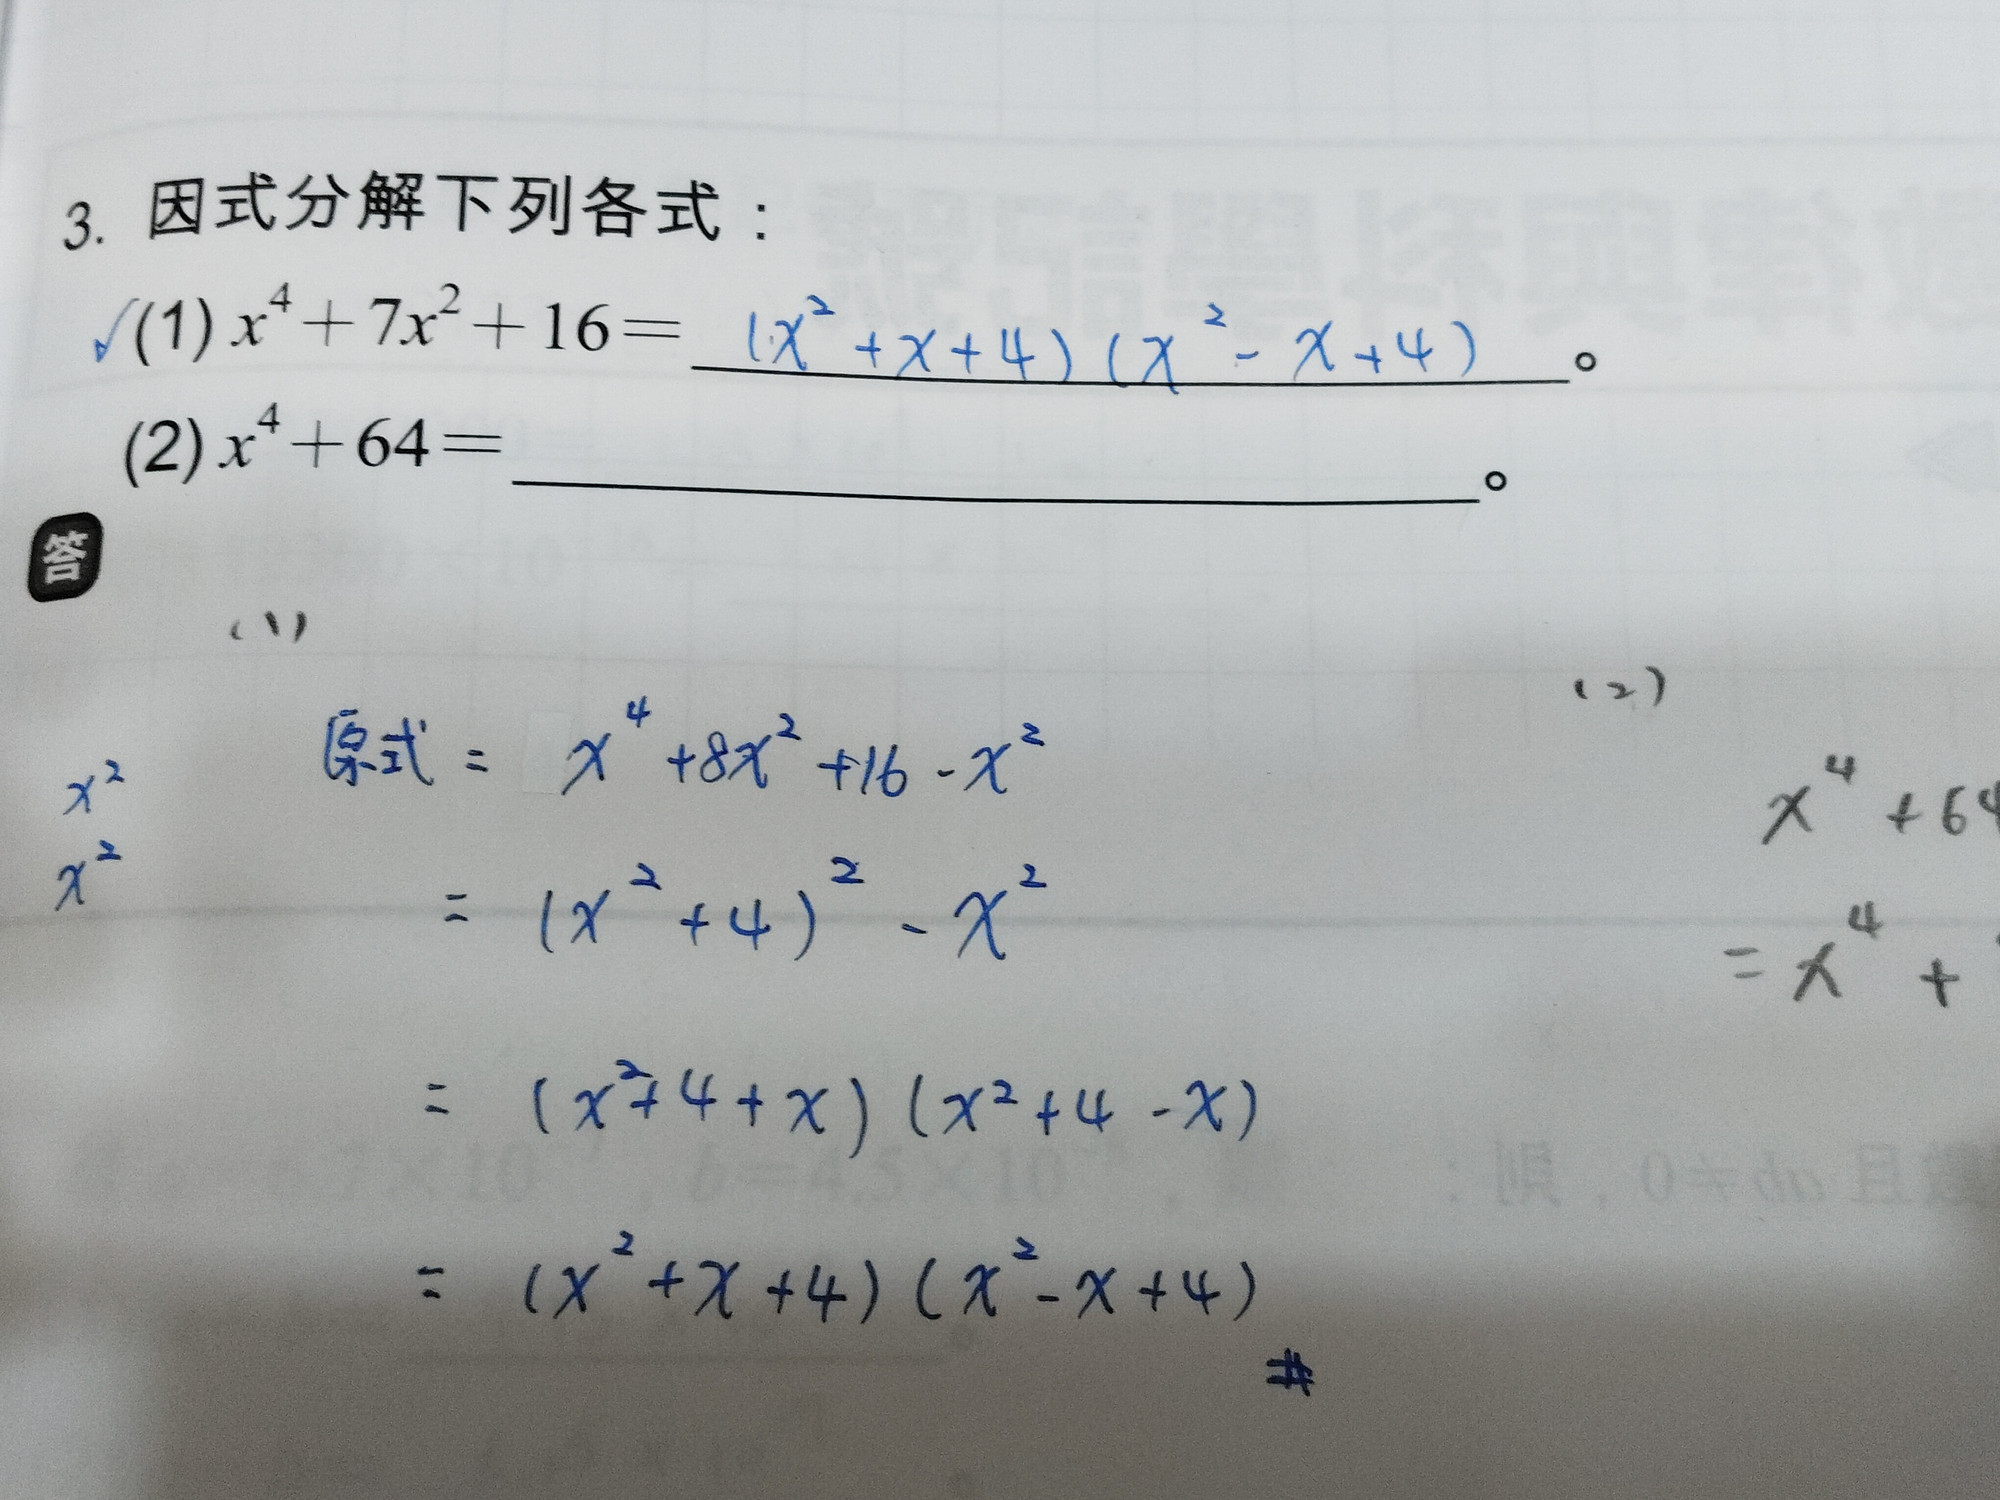 3. 因式分解下列各式：
✓(1) x⁴+7x²+16= (x²+x+4)(x²-x+4) 。
(2) x⁴+64= 。
答
(1)
原式 = x⁴+8x²+16-x²
= (x²+4)²-x²
= (x²+4+x)(x²+4-x)
= (x²+x+4)(x²-x+4)
#
x²
x²
(2)
x⁴+64
= x⁴+